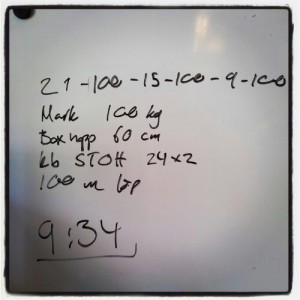 21-100-15-100-9-100
Mark 100 kg
Boxhopp 60 cm
kb STOH 24x2
100 m löp
9:34